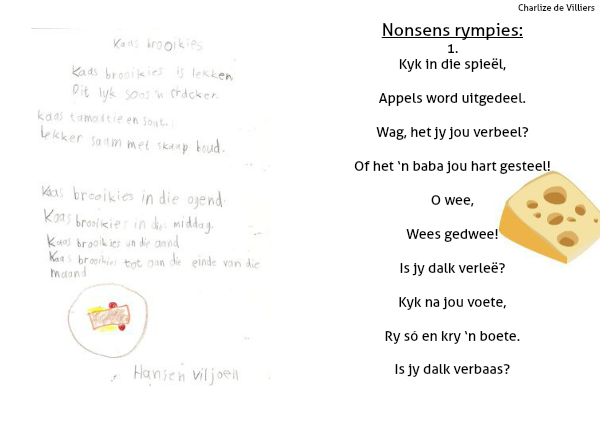 Kaas brooikies
Kaas brooikies is lekker
Dit lyk soos 'n cracker
kaas tamaatie en sout.
Lekker saam met skaap boud.
Kaas brooikies in die ogend.
Kaas brooikies in die middag.
Kaas brooikies in die aand
Kaas brooikies tot aan die einde van die
maand
Hansen viljoen
Charlize de Villiers
Nonsens rympies:
1.
Kyk in die spieël,
Appels word uitgedeel.
Wag, het jy jou verbeel?
Of het 'n baba jou hart gesteel!
O wee,
Wees gedwee!
Is jy dalk verleë?
Kyk na jou voete,
Ry só en kry 'n boete.
Is jy dalk verbaas?